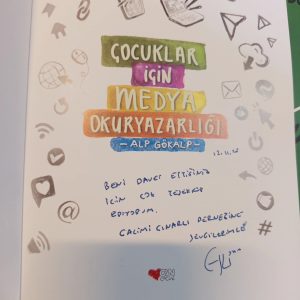 ÇOCUKLAR
İÇİN
MEDYA
OKURYAZARLIĞI
- ALP GÖKALP -
BENİ DAVET ETTİĞİNİZ
İÇİN ÇOK TEŞEKKÜR
EDİYORUM.
DERNEĞİNE
SEVGİLERİMLE